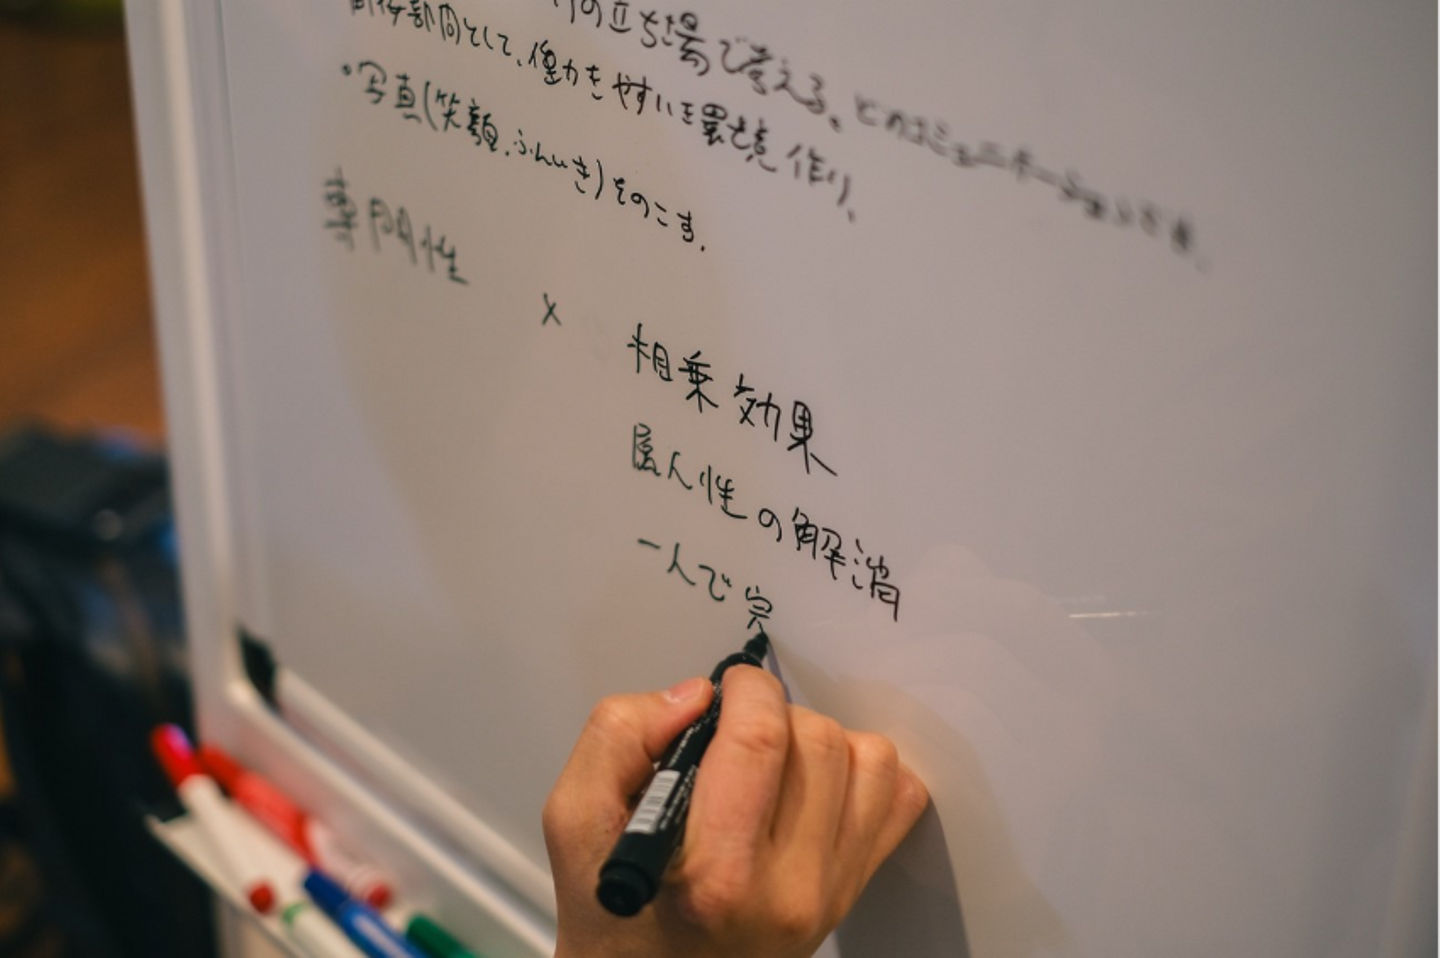 の立ち場で考える。とのコミュニケーション
間接部門として、働きやすいを環境作り、
・写真(笑顔、ふんいき)をのこす.
専門性
×
相乗効果
属人性の解消
一人で完